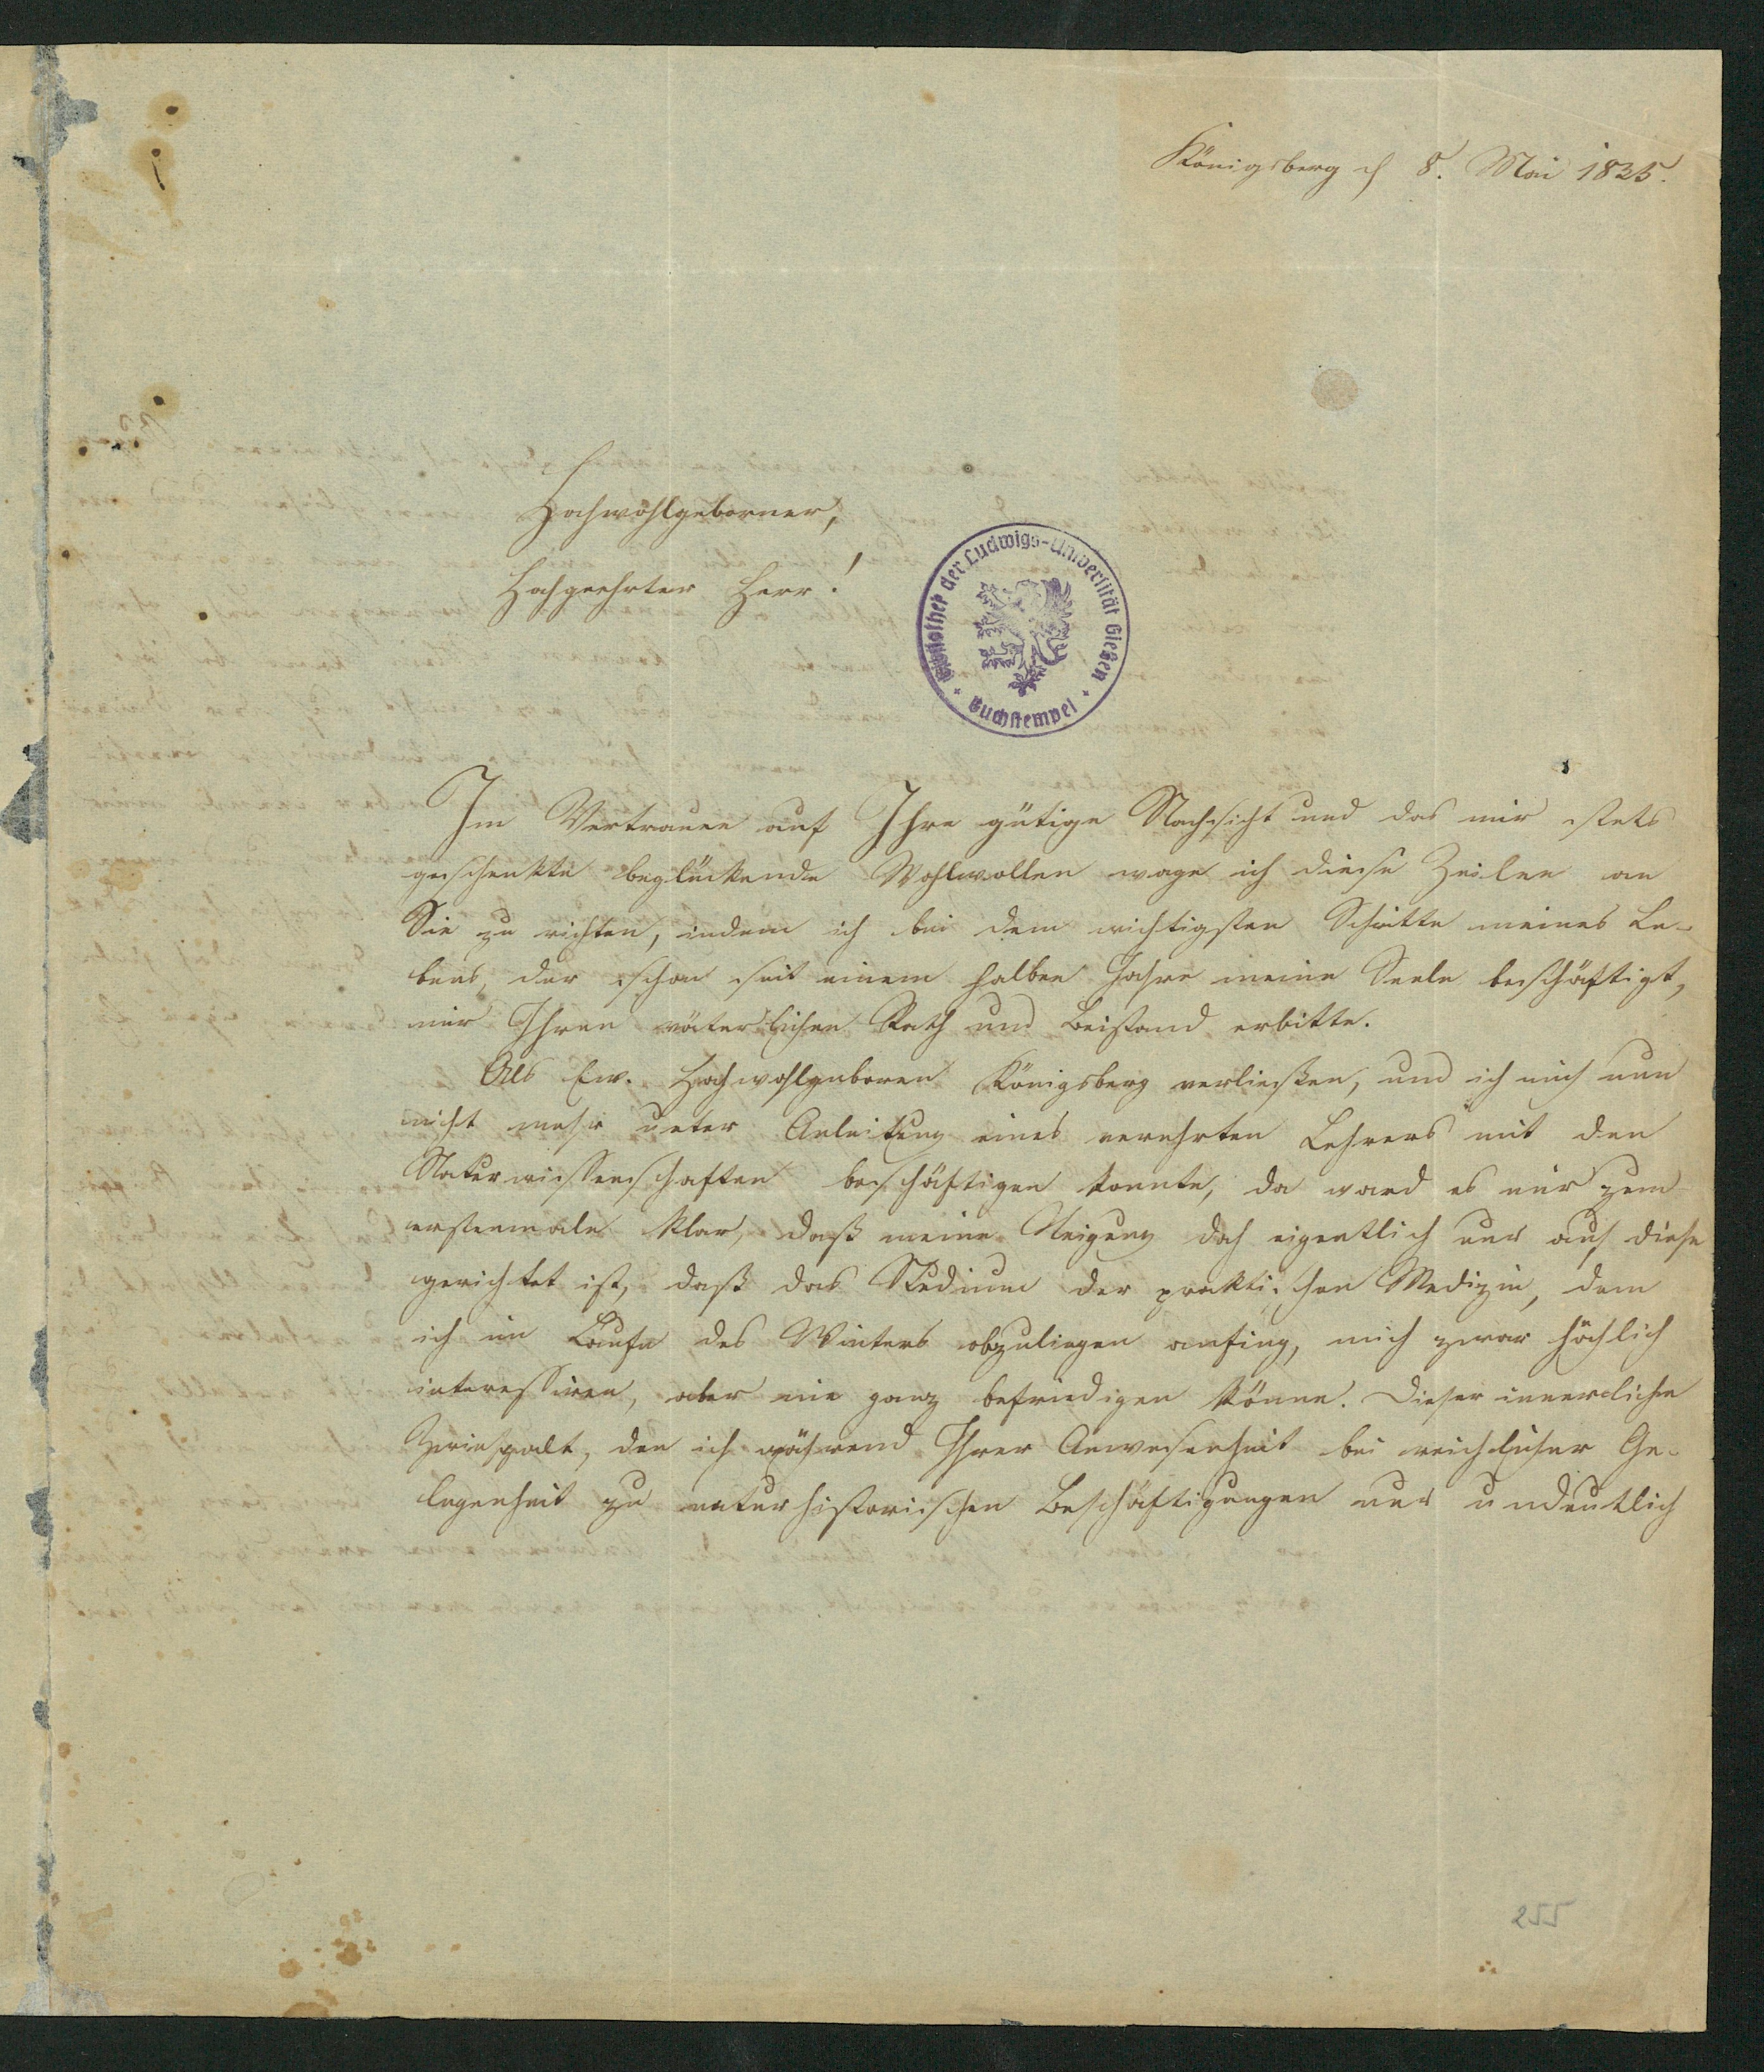 Königsberg d 8. Mai 1835.
Hochwohlgeborner,
Hochgeehrter Herr!
Bibliothek der Ludwigs-Universität Gießen
Buchstempel
Im Vertrauen auf Ihre gütige Nachsicht und das mir stets
geschenkte beglückende Wohlwollen wage ich diese Zeilen an
Sie zu richten, indem ich bei dem wichtigsten Schritte meines Le-
bens, der schon seit einem halben Jahre meine Seele beschäftigt,
mir Ihren väterlichen Rath und Beistand erbitte.
Als Ew. Hochwohlgeboren Königsberg verließen, und ich mich nun
nicht mehr unter Anleitung eines verehrten Lehrers mit den
Naturwissenschaften beschäftigen konnte, da ward es mir zum
erstenmale klar, daß meine Neigung doch eigentlich nur auf diese
gerichtet ist, daß das Studium der praktischen Medizin, dem
ich im Laufe des Winters obzuliegen anfing, mich zwar höchlich
interessiren, aber nie ganz befriedigen könne. Dieser innerliche
Zwiespalt, den ich während Ihrer Anwesenheit bei reichlicher Ge-
legenheit zu naturhistorischen Beschäftigungen nur undeutlich